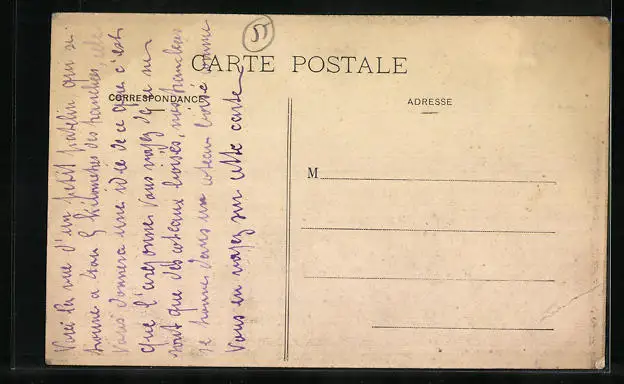 5
CARTE POSTALE
CORRESPONDANCE
ADRESSE
M
Voici la vue d'un petit patelin qui se
trouve a trois kilomètres des tranchées, elle
vous donnera une idée de ce que c'est
que l'argonne. Vous voyez que ce ne
sont que des coteaux boisés, nos tranchées
se trouve dans un coteau boisé comme
vous en voyez sur cette carte